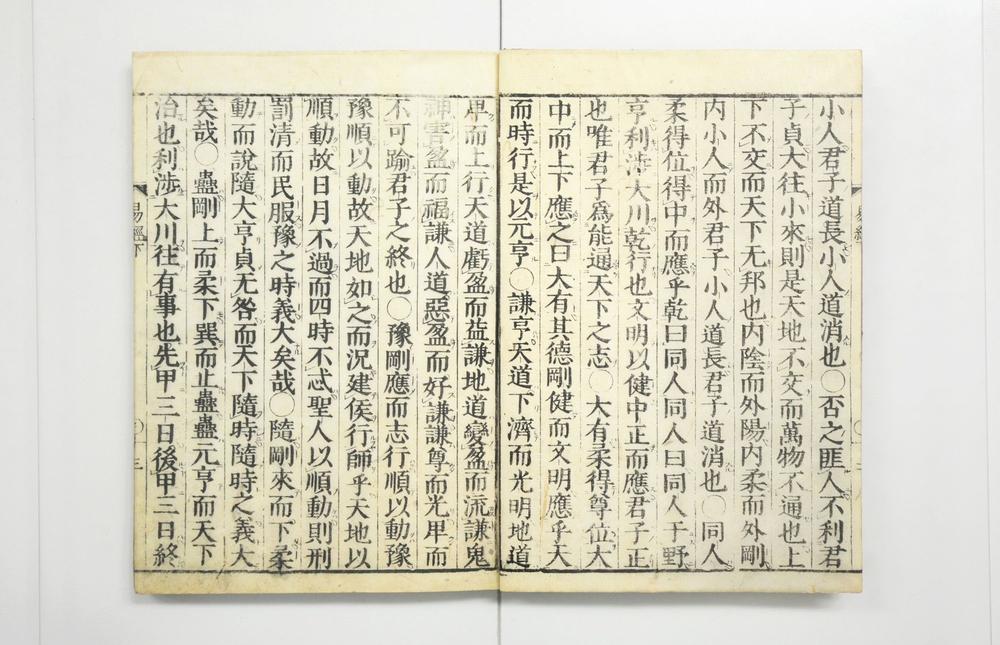 小人君子道長小人道消也○否之匪人不利君
子貞大往小來則是天地不交而萬物不通也上
下不交而天下无邦也内陰而外陽内柔而外剛
内小人而外君子小人道長君子道消也○同人
柔得位得中而應乎乾曰同人同人曰同人于野
亨利涉大川乾行也文明以健中正而應君子正
也唯君子爲能通天下之志○大有柔得尊位大
中而上下應之曰大有其德剛健而文明應乎天
而時行是以元亨○謙亨天道下濟而光明地道
卑而上行天道虧盈而益謙地道變盈而流謙鬼
神害盈而福謙人道惡盈而好謙謙尊而光卑而
不可踰君子之終也○豫剛應而志行順以動豫
豫順以動故天地如之而況建侯行師乎天地以
順動故日月不過而四時不忒聖人以順動則刑
罰清而民服豫之時義大矣哉○隨剛來而下柔
動而說隨大亨貞无咎而天下隨時隨時之義大
矣哉○蠱剛上而柔下巽而止蠱蠱元亨而天下
治也利涉大川往有事也先甲三日後甲三日終
易經下 ○三